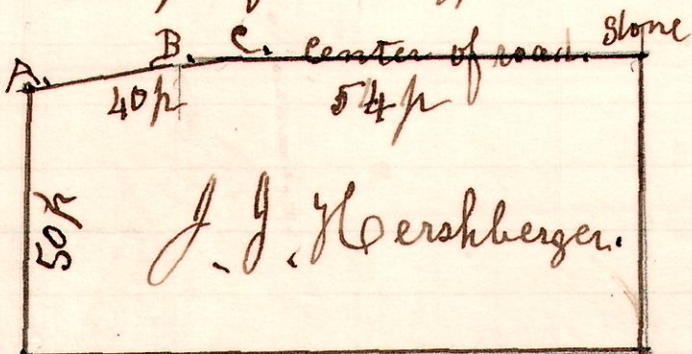 A. B. C. center of road. Stone
40p 54p
50p
J. J. Hershberger.